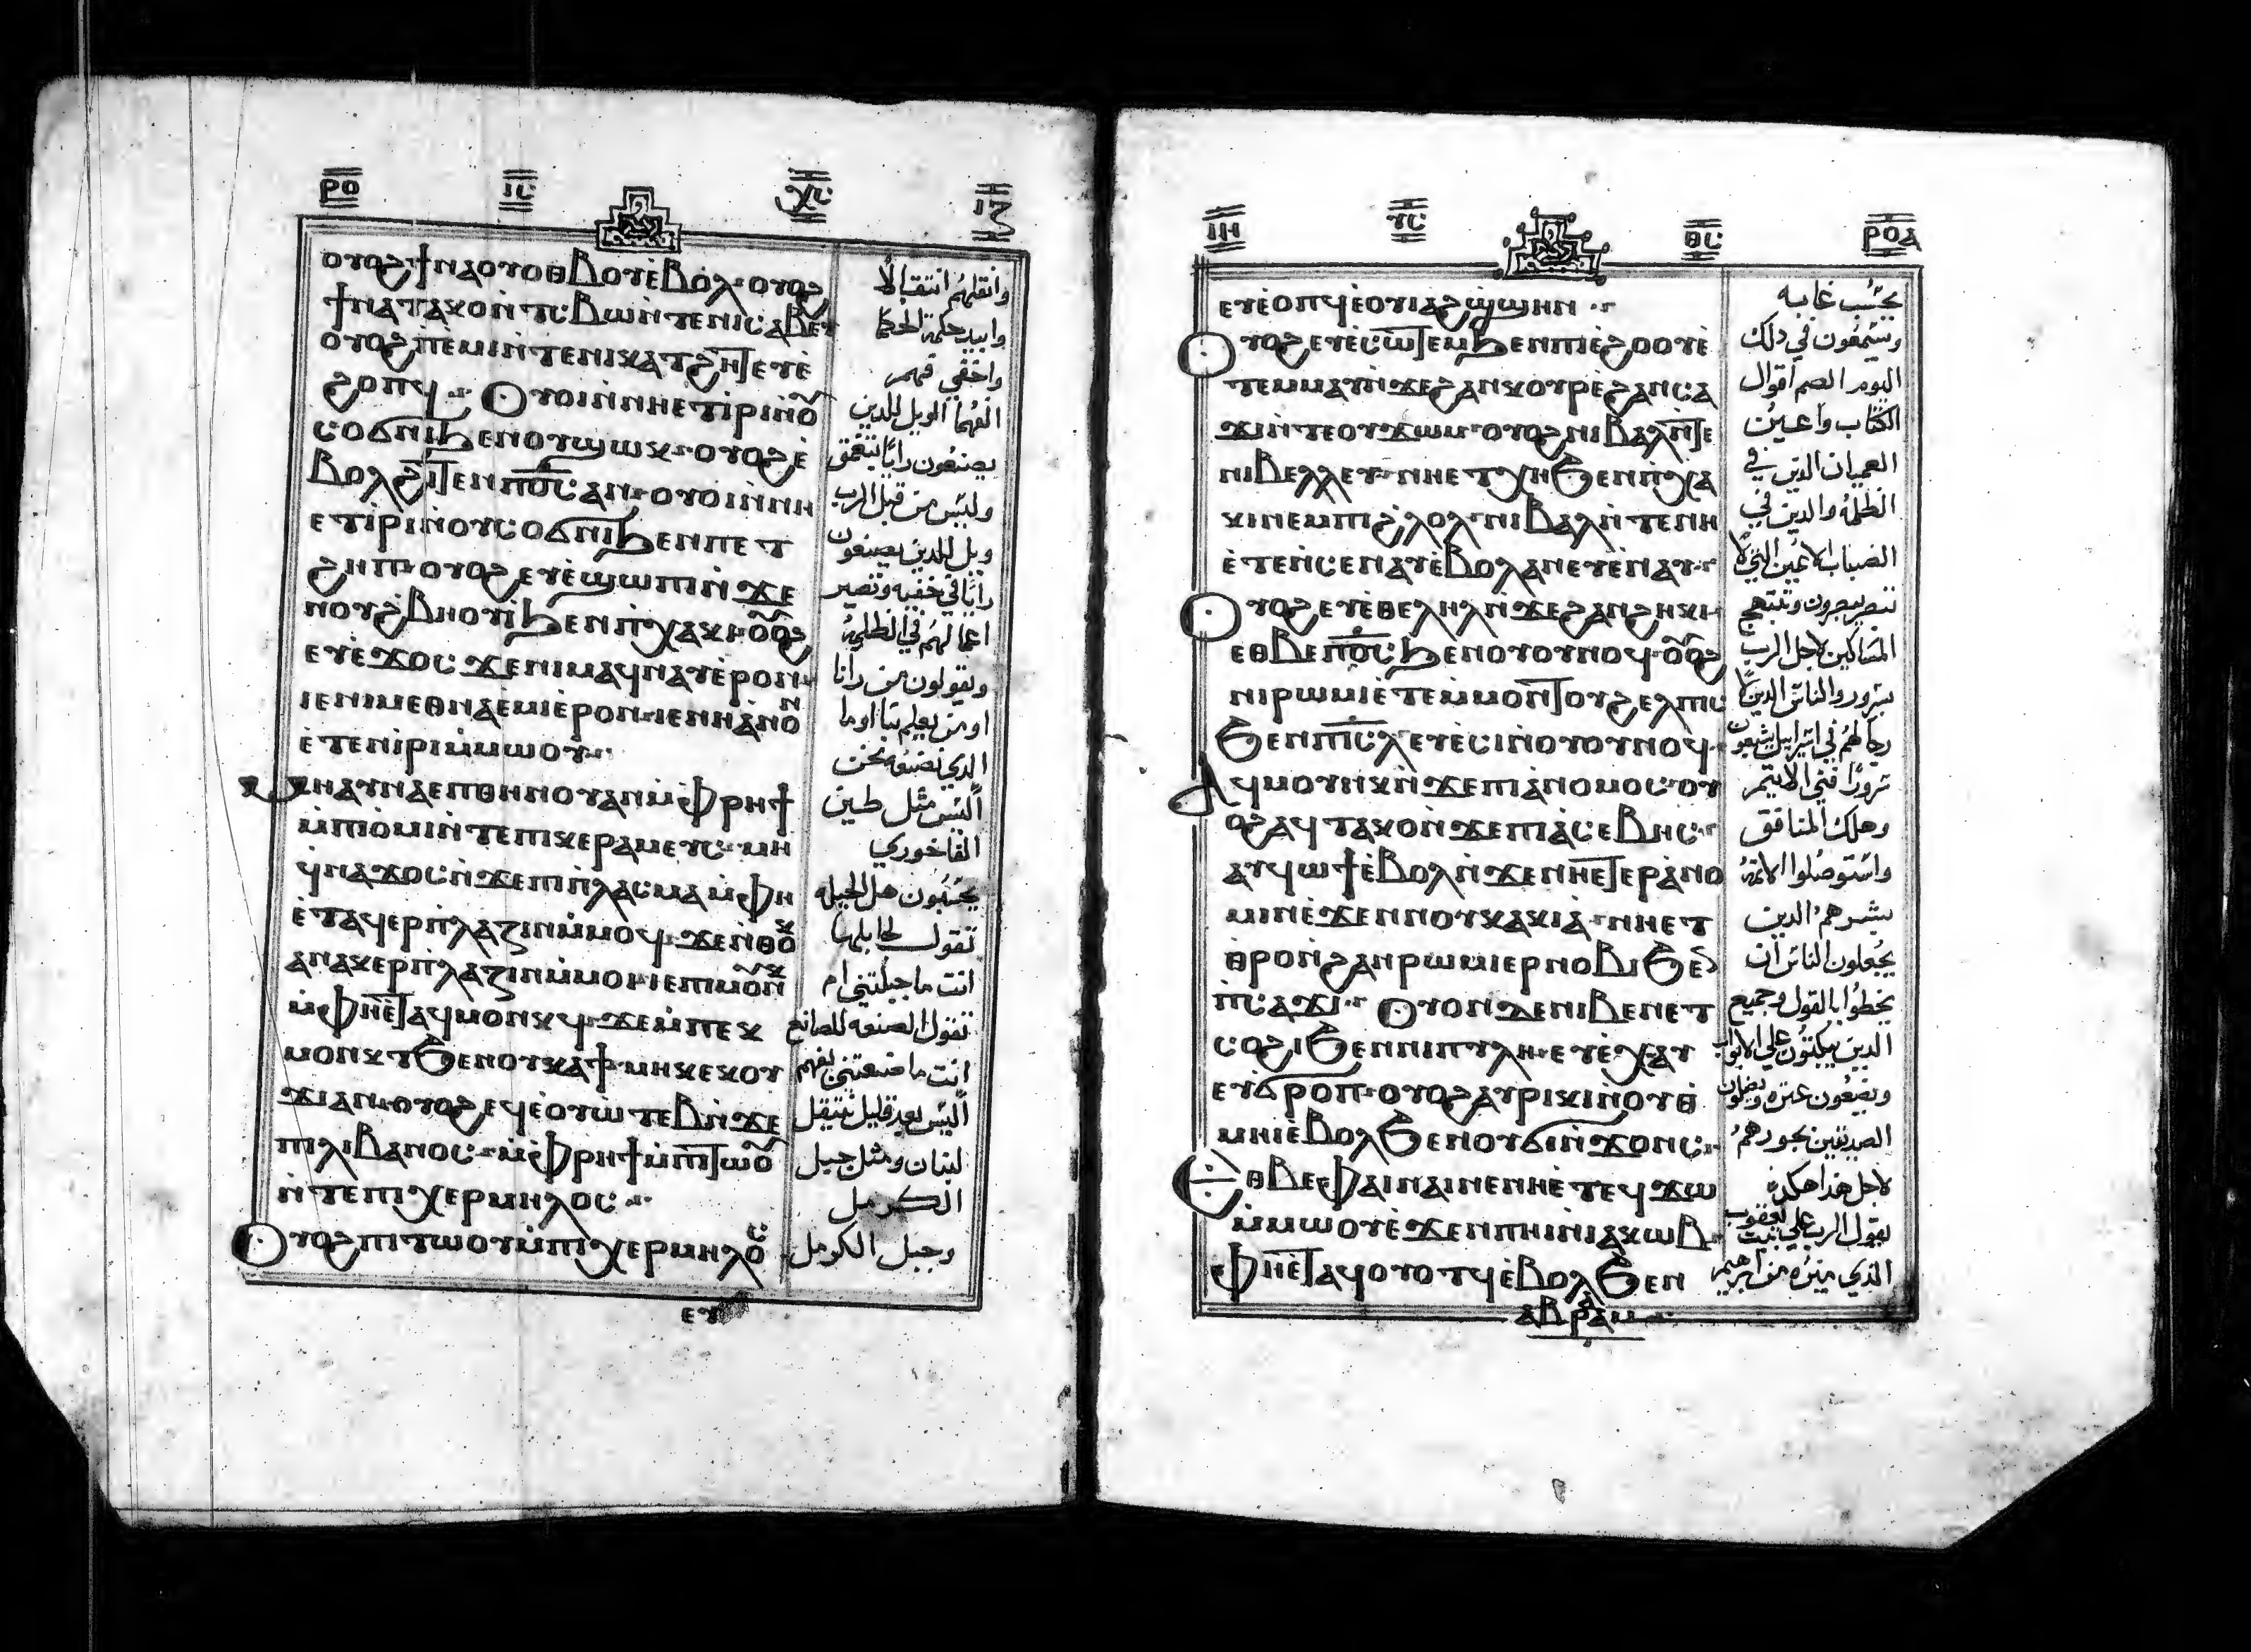 ⲣⲟ ⲓⲥ ⲭⲥ ⲓⲍ
ⲟⲩⲟϩϯⲛⲁⲟⲩⲟⲑⲃⲟⲩⲉ̀ⲃⲟⲗ·ⲟⲩⲟϩ
ϯⲛⲁⲧⲁⲕⲟⲛ̀ⲧⲥⲃⲱⲛ̀ⲧⲉⲛⲓⲥⲁⲃⲉⲩ
ⲟⲩⲟϩⲡ̀ⲉⲙⲓⲛ̀ⲧⲉⲛⲓⲕⲁⲧϩⲏⲧⲉⲩⲉ̀
ϩⲟⲡϥ ⲟⲩⲟⲓⲛ̀ⲛⲏⲉⲧⲓ̀ⲣⲓⲛ̀ⲟ
ⲥⲟϭⲛⲓϧⲉⲛⲟⲩϣⲱⲕ·ⲟⲩⲟϩⲉ̀
ⲃⲟⲗϩⲓⲧⲉⲛⲡⲟ̅ⲥ̅ⲁⲛ·ⲟⲩⲟⲓⲛ̀ⲛⲏ
ⲉⲧⲓ̀ⲣⲓⲛ̀ⲟⲩⲥⲟϭⲛⲓϧⲉⲛⲡⲉⲧ
ϩⲏⲡ·ⲟⲩⲟϩⲉⲩⲉ̀ϣⲱⲡⲓⲛ̀ϫⲉ
ⲛⲟⲩϩ̀ⲃⲏⲟⲩⲓ̀ϧⲉⲛⲡ̀ⲭⲁⲕⲓ·ⲟⲟϩ
ⲉⲩⲉ̀ϫⲟⲥϫⲉⲛⲓⲙⲁϥⲛⲁⲩⲉ̀ⲣⲟⲛ·
ⲓⲉⲛⲓⲙⲉⲑⲛⲁⲉ̀ⲙⲓⲉ̀ⲣⲟⲛ·ⲓⲉⲛⲏⲁ̀ⲛⲟⲛ
ⲉ̀ⲧⲉⲛⲓ̀ⲣⲓⲙ̀ⲙⲱⲟⲩ
ⲙⲏⲁⲩⲛⲁⲉⲡⲑⲏⲛⲟⲩⲁⲛⲙ̀ⲫⲣⲏϯ
ⲙ̀ⲡⲓⲟ̀ⲙⲓⲛ̀ⲧⲉⲡⲓⲕⲉⲣⲁⲙⲉⲩⲥ·ⲙⲏ
ϥⲛⲁϫⲟⲥⲛ̀ϫⲉⲡⲓⲡ̀ⲗⲁⲥⲙⲁⲙ̀ⲫⲏ
ⲉ̀ⲧⲁϥⲉⲣⲡ̀ⲗⲁⲍⲓⲛⲙ̀ⲙⲟϥ·ϫⲉⲛ̀ⲑⲟⲕ
ⲁⲛⲁⲕⲉⲣⲡ̀ⲗⲁⲍⲓⲛⲙ̀ⲙⲟⲓ·ⲓⲉⲡⲓⲙⲟⲛⲕ
ⲙ̀ⲫⲏⲉ̀ⲧⲁϥⲙⲟⲛⲕϥ·ϫⲉⲙ̀ⲡⲉⲕ
ⲙⲟⲛⲕⲧϧⲉⲛⲟⲩⲕⲁϯ·ⲙⲏⲕⲉⲕⲟⲩ
ϫⲓⲁⲛ·ⲟⲩⲟϩⲉϥⲉ̀ⲟⲩⲱ̀ⲧⲉⲃⲛ̀ϫⲉ
ⲡⲓⲗⲓⲃⲁⲛⲟⲥ·ⲙ̀ⲫⲣⲏϯⲙ̀ⲡⲓⲧⲱⲟ
ⲛ̀ⲧⲉⲡⲓⲭⲉⲣⲙⲏⲗⲟⲥ
ⲟⲩⲟϩⲡⲓⲧⲱⲟⲩⲙ̀ⲡⲓⲭⲉⲣⲙⲏⲗⲟⲥ
ⲉⲩ
وانقلهم انتقالًا
وابيد حكمة الحكما
واخفي فهم
الفهما الويل للدين
يصنعون رايًا بتعمق
وليس من قبل الرب
ويل للدين يصنعون
رايًا في خفيه وتصير
اعمالهم في الظلمة
ويقولون من رانا
او من يعلم بنا او ما
الدي نصنعه نحن
اليس مثل طين
الفاخوري
يحسبون هل الجبله
تقول لجابلها
انت ما جبلتني ام
تقول الصنعه للصانع
انت ما صنعتني بفهم
اليس بعد قليل ينتقل
لبنان ومثل جبل
الكرمل
وجبل الكرمل
ⲓⲏ ⲩⲥ ⲑⲥ ⲣⲟⲁ
ⲉⲩⲉ̀ⲟⲡϥⲉ̀ⲟⲩⲓⲁϩϣ̀ϣⲏⲛ
ⲟⲩⲟϩⲉⲩⲉ̀ⲥⲱⲧⲉⲙϧⲉⲛⲡⲓⲉ̀ϩⲟⲟⲩⲉ̀
ⲧⲉⲙⲙⲁⲩⲛ̀ϫⲉϩⲁⲛⲕⲟⲩⲣⲉ̀ϩⲁⲛⲥⲁ
ϫⲓⲛ̀ⲧⲉⲟⲩϫⲱⲙ·ⲟⲩⲟϩⲛⲓⲃⲁⲗⲛ̀ⲧⲉ
ⲛⲓⲃⲉⲗⲗⲉⲩ·ⲛⲏⲉⲧⲭⲏϧⲉⲛⲡ̀ⲭⲁ
ⲕⲓⲛⲉⲙⲡⲓϩ̀ⲗⲟⲗ·ⲛⲓⲃⲁⲗⲛ̀ⲧⲉⲛⲏ
ⲉ̀ⲧⲉⲛ̀ⲥⲉⲛⲁⲩⲉ̀ⲃⲟⲗⲁⲛⲉⲩⲉ̀ⲛⲁⲩ
ⲟⲩⲟϩⲉⲩⲉ̀ⲑⲉⲗⲏⲗⲛ̀ϫⲉϩⲁⲛϩⲏⲕⲓ·
ⲉⲑⲃⲉⲡⲟ̅ⲥ̅ϧⲉⲛⲟⲩⲟⲩⲛⲟϥ·ⲟⲟϩ
ⲛⲓⲣⲱⲙⲓⲉ̀ⲧⲉⲙ̀ⲙⲟⲛⲧⲟⲩϩⲉⲗⲡⲓⲥ
ϧⲉⲛⲡⲓ̅ⲥ̅ⲗ̅ⲉⲩⲉ̀ⲥⲓⲛ̀ⲟⲩⲟⲩⲛⲟϥ·
ⲁϥⲙⲟⲩⲛⲕⲛ̀ϫⲉⲡⲓⲁ̀ⲛⲟⲙⲟⲥ·ⲟⲩ
ⲟϩⲁϥⲧⲁⲕⲟⲛ̀ϫⲉⲡⲓⲁ̀ⲥⲉⲃⲏⲥ
ⲁⲩϥⲱϯⲉ̀ⲃⲟⲗⲛ̀ϫⲉⲛⲏⲉ̀ⲧⲉⲣⲁ̀ⲛⲟ
ⲙⲓⲛⲉ̀ϫⲉⲛⲛⲟⲩⲕⲁⲕⲓⲁ̀·ⲛⲏⲉⲧ
ⲑ̀ⲣⲟⲛ̀ϩⲁⲛⲣⲱⲙⲓⲉⲣⲛⲟⲃⲓϧⲉⲛ
ⲡ̀ⲥⲁϫⲓ ⲟⲩⲟⲛⲇⲉⲛⲓⲃⲉⲛⲉⲧ
ⲥⲟϩⲓϧⲉⲛⲛⲓⲡⲩⲗⲏ·ⲉⲩⲉ̀ⲭⲁⲩ
ⲉⲩϭⲣⲟⲡ·ⲟⲩⲟϩⲁⲩⲣⲓⲕⲓⲛ̀ⲟⲩⲑ̀
ⲙⲏⲓⲉ̀ⲃⲟⲗϧⲉⲛⲟⲩϭⲓⲛ̀ϫⲟⲛⲥ·
ⲉⲑⲃⲉⲫⲁⲓⲛⲁⲓⲛⲉⲛⲏⲉ̀ⲧⲉϥϫⲱ
ⲙ̀ⲙⲱⲟⲩⲉ̀ϫⲉⲛⲡⲏⲓⲛ̀ⲓⲁⲕⲱⲃ·
ⲫⲏⲉ̀ⲧⲁϥⲟⲩⲟⲧϥⲉ̀ⲃⲟⲗϧⲉⲛ
ⲁⲃⲣⲁⲁⲙ
يحسب غابه
ويسمعون في دلك
اليوم الصم اقوال
الكتاب واعين
العميان الدين في
الظلمه والدين في
الضباب الاعين التي لا
تبصر يبصرون وتبتهج
المساكين لاجل الرب
بسرور والناس الدين لا
رجا لهم في اسراييل يشبعون
سرورًا فني الاثيم
وهلك المنافق
واستوصلوا الاثمة
بشرهم الدين
يجعلون الناس ان
يخطوا بالقول وجميع
الدين يبكتون علي الابواب
ويضعون عثره ويضلون
الصديقين بجورهم
لاجل هدا هكدي
يقول الرب علي بيت يعقوب
الذي ميزه من ابرهيم